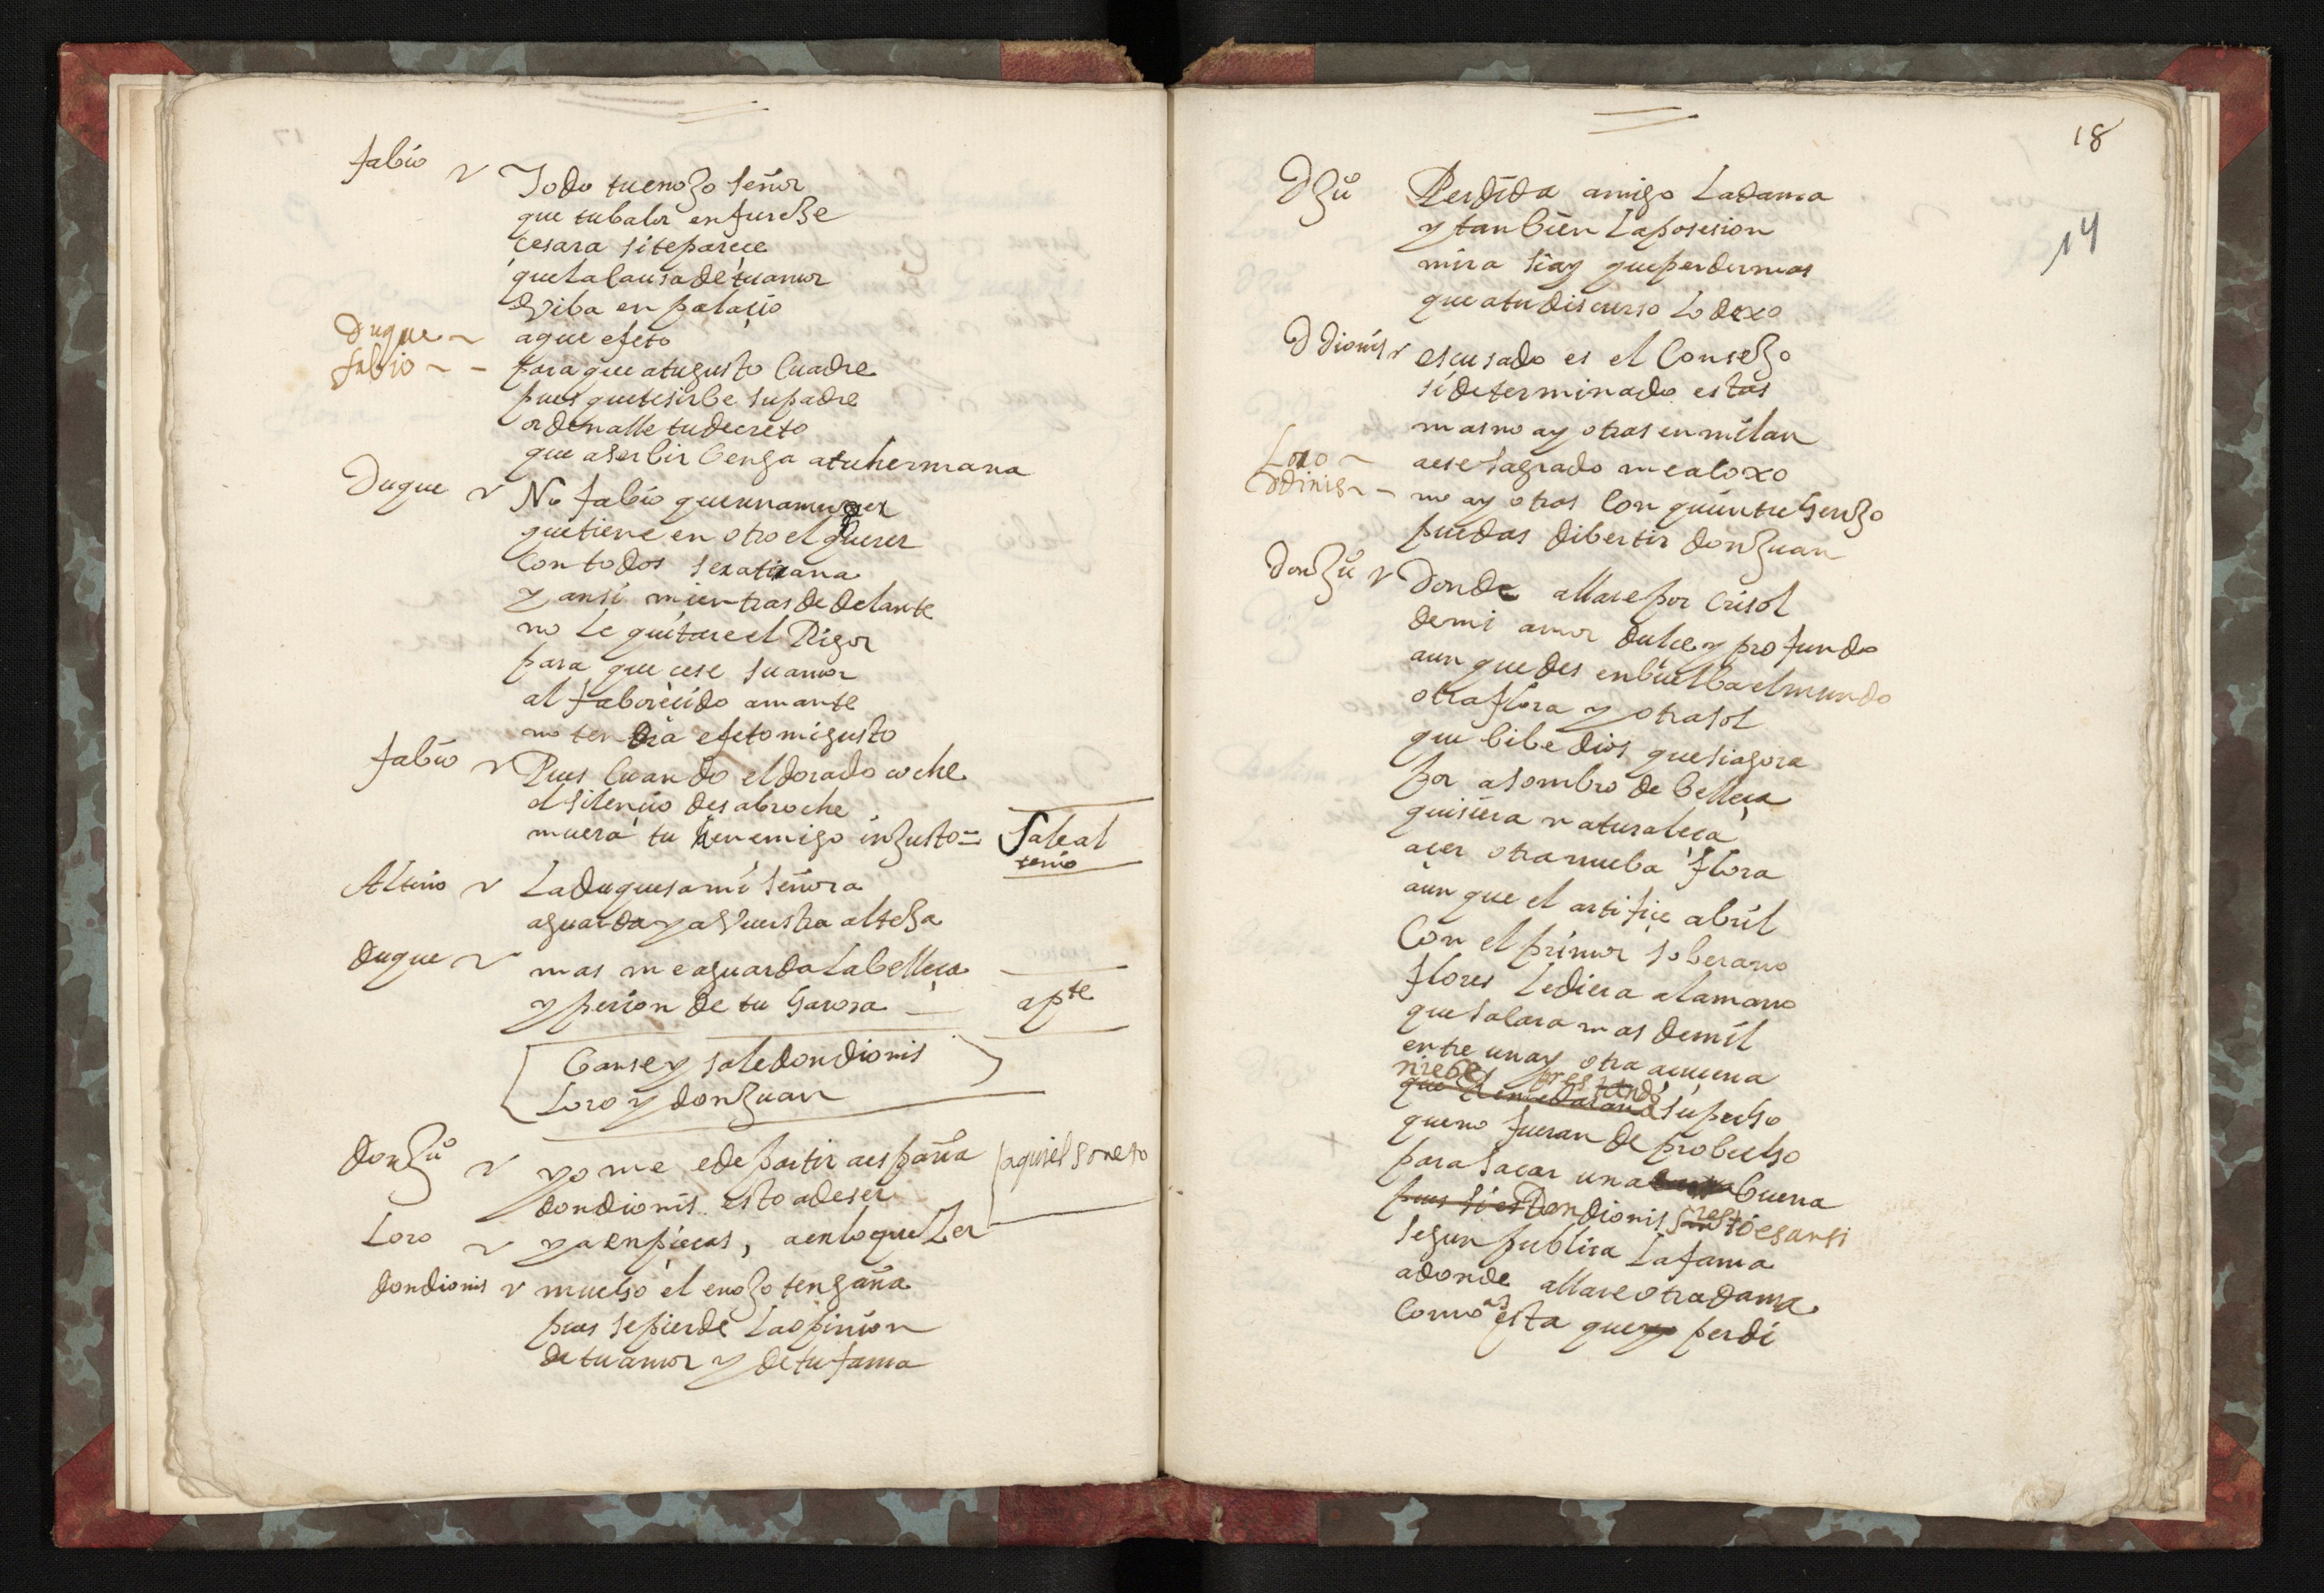 fabio Todo tu enoȝo señor
que tu balor enfureçe
cesara si te pareçe
que la causa de tu amor
viba en palaçio
Duque aque efeto
fabio para que a tu gusto cuadre
pues que te sirbe su padre
ordenalle tu decreto
que a serbir benga a tu hermana
Duque No fabio que una muger
que tiene en otro el querer
con todos sera tirana
y ansi mientras de delante
no le quitare el Rigor
para que cese su amor
al faboreçido amante
no tendra efeto mi gusto
fabio Pues cuando el dorado coche
el silençio desabroche
muera tu enemigo inȝusto = Sale al
tenio
Altenio La duquesa mi señora
aguarda ya a vuestra alteȝa
duque mas me aguarda la belleça
y perion de tu
apte
banse y sale don dionis
Loro y don ȝuan
don ȝu yo me e de partir a españa aqui el soneto
don dionis esto a de ser
Loro ya enpieças, a enloqueçer
don dionis mucho el enoȝo te engaña
pues se pierde la opinion
de tu amor y de tu fama
18
14
D ȝu Perdida amigo la dama
y tanbien la posesion
mira si ay que perder mas
que a tu discurso lo dexo
D dionis escusado es el conseȝo
si determinado estas
mas no ay otras en milan
Loro a ese sagrado me aloxo
D dinis no ay otras con quien tu
puedas dibertir don ȝuan
don ȝu donde allare por crisol
de mi amor dulce y profundo
aunque des en buelba el mundo
otra flora y otra sol
que bibe dios que si agora
por asombro de belleça
quisiera naturaleça
açer otra nueba flora
aunque el artifiçe abril
con el primor soberano
flores le diera a la mano
que salara mas de mil
entre una y otra açuçena
niebe prestando
su pecho
que no fueran de probecho
para sacar una buena
pues si es Don dionis esto es ansi
segun publica la fama
adonde allare otra dama
como esta que yo perdi